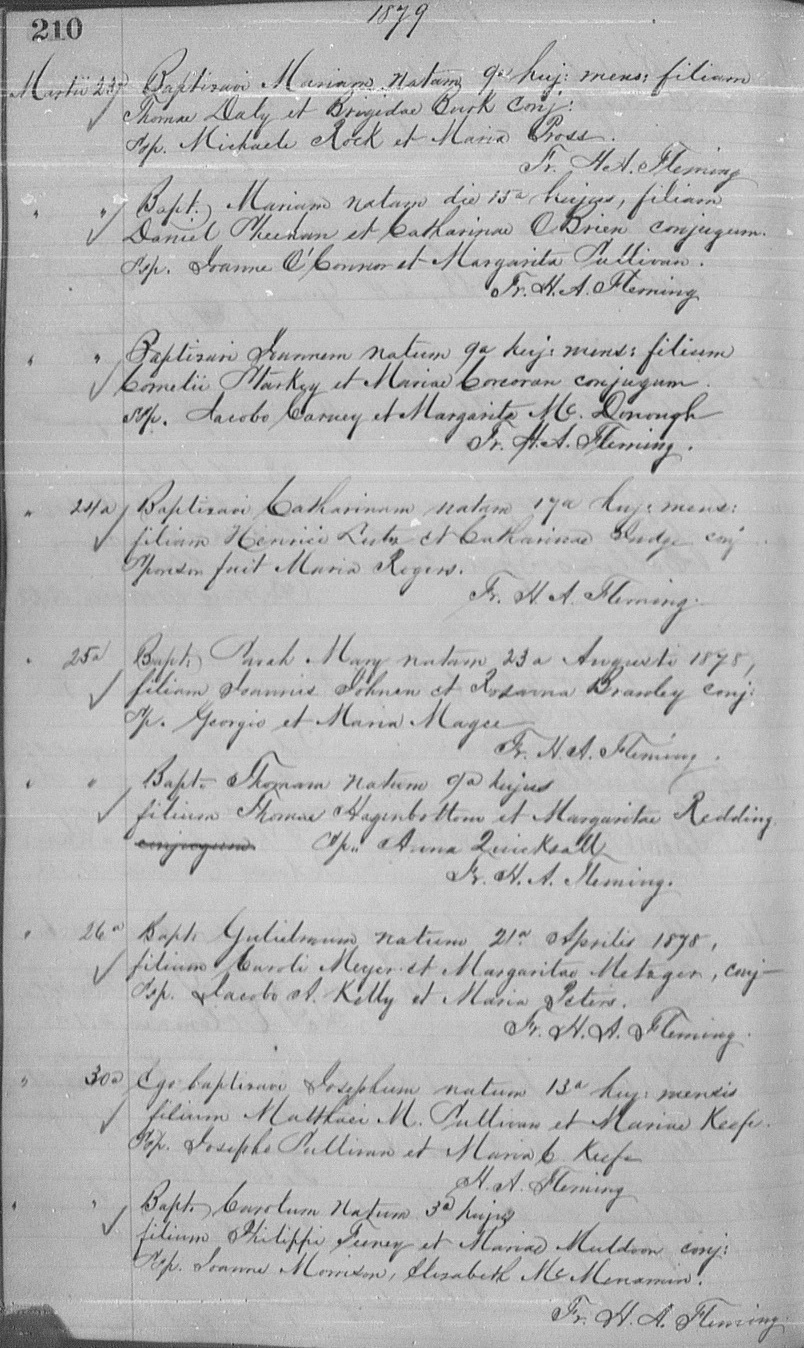 210
1879
Martii 23a Baptizavi Mariam natam 9a huj: mens: filiam
Thomae Daly et Brigidae Burk conj:
Sp. Michaele Rock et Maria Pross.
Fr. H. A. Fleming
" " Bapt. Mariam natam die 15a hujus, filiam
Daniel Sheehan et Catharinae O'Brien conjugum.
Sp. Joanne O'Connor et Margarita Sullivan.
Fr. H. A. Fleming
" " Baptizavi Joannem natum 9a huj: mens: filium
Cornelii Starkey et Mariae Corcoran conjugum.
Sp. Jacobo Carney et Margarita Mc. Donough
Fr. H. A. Fleming.
" 24a Baptizavi Catharinam natam 17a huj: mens:
filiam Henrici et Catharinae Judge conj
fuit Maria Rogers.
Fr. H. A. Fleming.
" 25a Bapt. Sarah Mary natam 23a Augusti 1878,
filiam Joannis Johnen et Rosanna Brawley conj:
Sp. Georgio et Maria Magee
Fr. H. A. Fleming.
" " Bapt. Thomam natum 9a hujus
filium Thomae Hagenbottom et Margaritae Redding
conjugum Sp. Anna Quicksall
Fr. H. A. Fleming.
" 26a Bapt. Gulielmum natum 21a Aprilis 1878,
filium Caroli Meyer et Margaritae Metzger, conj-
Sp. Jacobo A. Kelly et Maria Peters.
Fr. H. A. Fleming.
" 30a Ego baptizavi Josephum natum 13a huj: mensis
filium Matthaei M. Sullivan et Mariae Keefe.
Sp. Josepho Sullivan et Maria C Keefe
H. A. Fleming
" " Bapt. Carolum natum 3a hujus
filium Philippi Feeney et Mariae Muldoon conj:
Sp. Joanne Morrison, Elisabeth Mc Menamin.
Fr. H. A. Fleming.